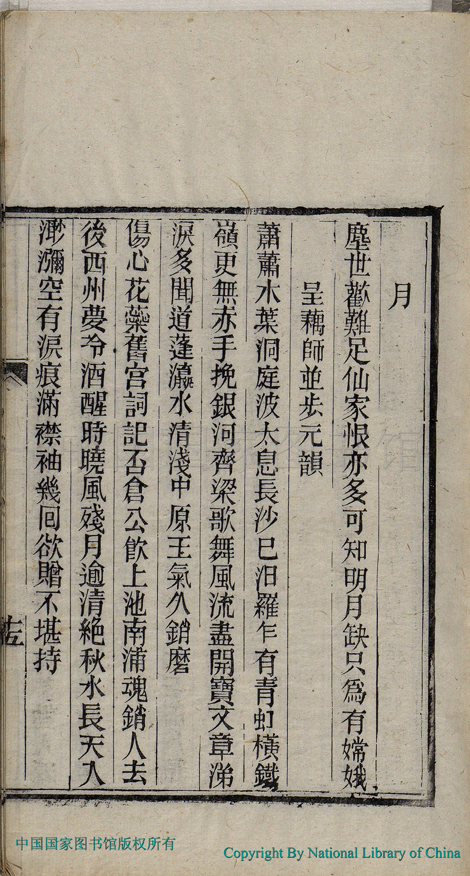 月
塵世歡難足仙家恨亦多可知明月缺只爲有嫦娥
呈藕師並步元韻
蕭蕭木葉洞庭波太息長沙已汨羅乍有青虹橫鐵
嶺更無赤手挽銀河齊梁歌舞風流盡開寶文章涕
淚多聞道蓬瀛水清淺中原王氣久銷磨
傷心花蘂舊宮詞記否倉公飲上池南浦魂銷人去
後西州夢冷酒醒時曉風殘月逾清絶秋水長天入
渺瀰空有淚痕滿襟袖幾回欲贈不堪持
中国国家图书馆版权所有
Copyright By National Library of China